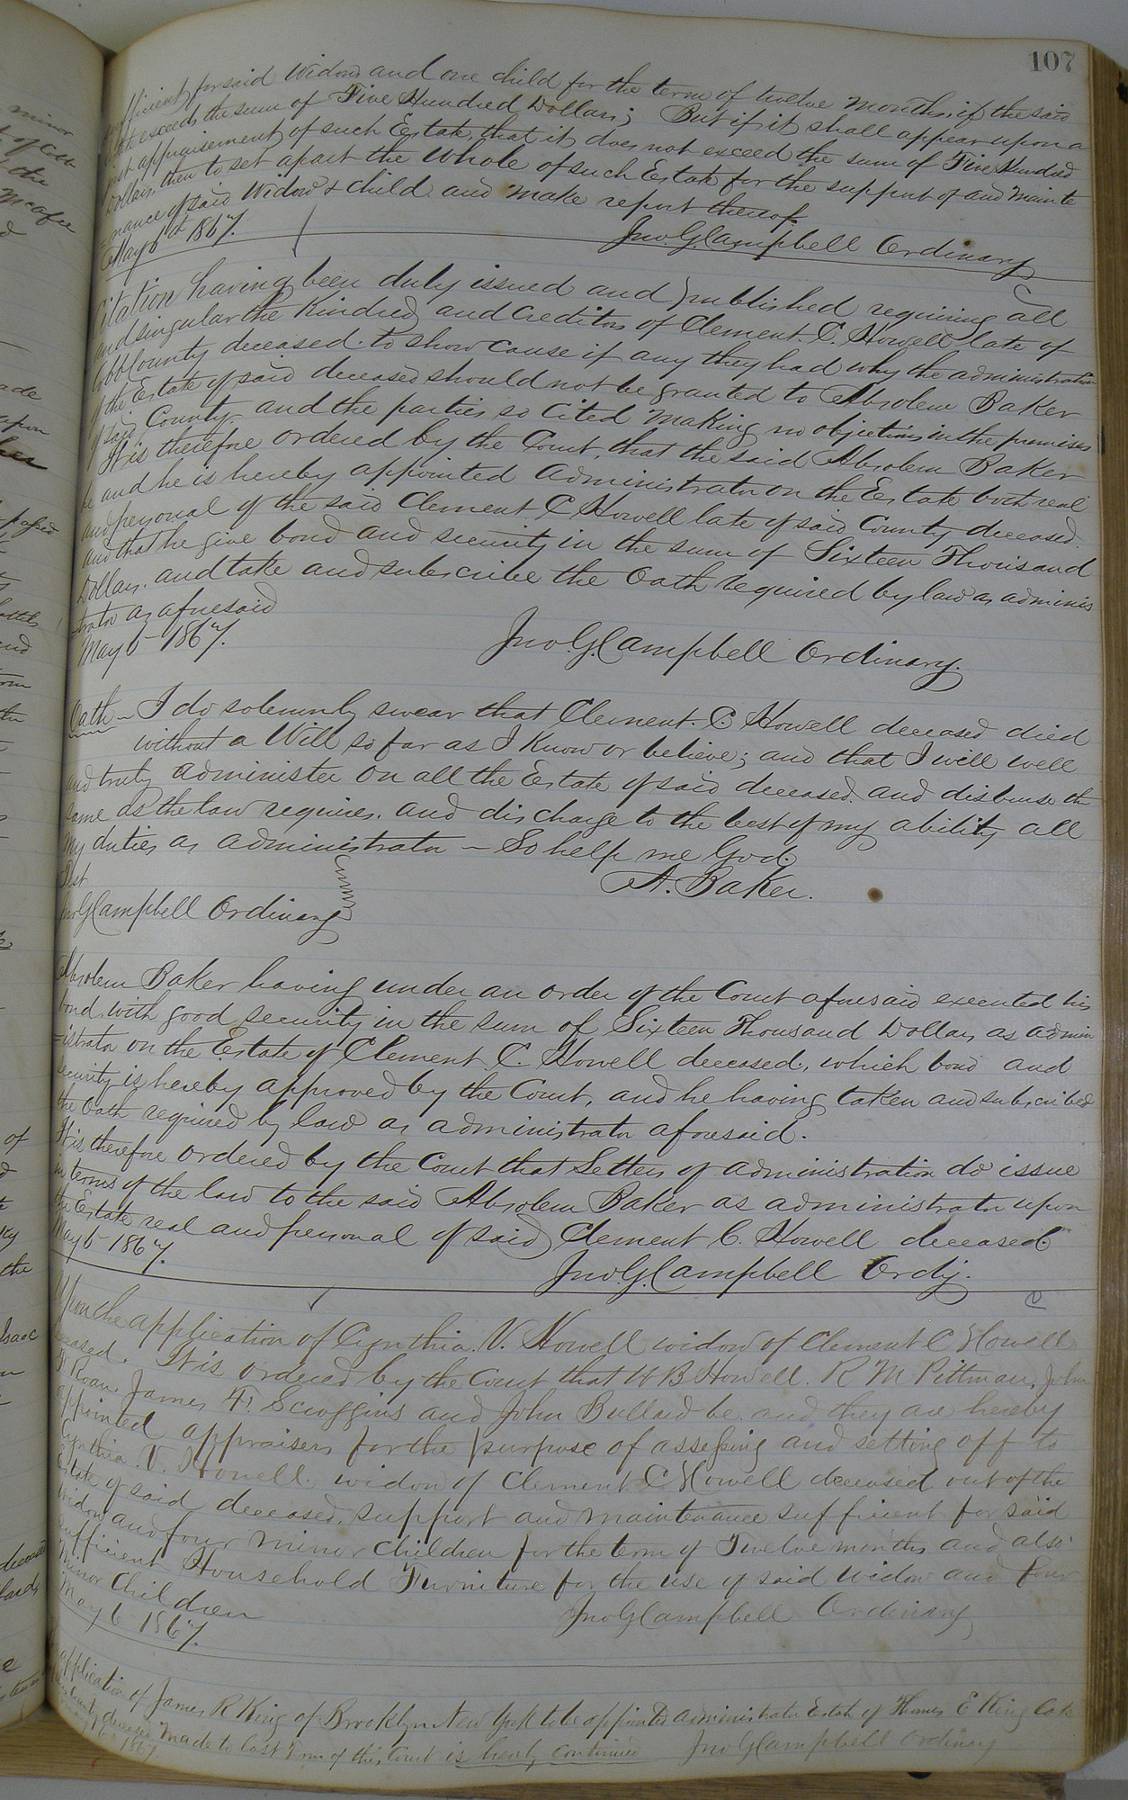 107
sufficient for said Widow and one child for the term of twelve months, if the said
exceeds the sum of Five Hundred Dollars; But if it shall appear upon a
just appraisement of such Estate, that it does not exceed the sum of Five Hundred
Dollars, then to set apart the whole of such Estate for the support of and mainte
nance of said Widow & child and make report thereof
May 6th 1867.
Jno. G. Campbell Ordinary
Citation having been duly issued and published requiring all
and singular the Kindred and Creditors of Clement. C. Howell late of
Cobb County deceased. to show cause if any they had why the administration
of the Estate of said deceased should not be granted to Absolem Baker
of said County. and the parties so cited making no objections in the premises
It is therefore ordered by the Court, that the said Absolem Baker
be and he is hereby appointed administrator on the Estate both real
and personal of the said Clement C Howell late of said County deceased.
and that he give bond and security in the sum of Sixteen Thousand
Dollars. and take and subscribe the Oath required by law as adminis
trator as aforesaid
May 6 1867.
Jno. G. Campbell Ordinary.
Oath - I do solemnly swear that Clement. C. Howell deceased died
without a Will so far as I know or believe; and that I will well
and truly administer on all the Estate of said deceased. and disburse the
same as the law requires. and discharge to the best of my ability all
my duties as administrator - So help me God.
Test
A. Baker.
Jno G Campbell Ordinary
Absolem Baker having under an order of the Court aforesaid executed his
bond, with good security in the sum of Sixteen Thousand Dollars as admin
-istrator on the Estate of Clement. C. Howell deceased, which bond and
security is hereby approved by the Court, and he having taken and subscribed
the Oath required by law as administrator aforesaid.
It is therefore ordered by the Court that Letters of administration do issue
in terms of the law to the said Absolem Baker as administrator upon
the Estate real and personal of said Clement C. Howell deceased.
May 6 1867.
Jno. G. Campbell Ordy.
Upon the application of Cynthia. V. Howell widow of Clement C Howell
deceased. It is ordered by the Court that W B Howell. R M Pittman, John
Roan, James F. Scroggins and John Bullard be and they are hereby
appointed appraisers for the purpose of assessing and setting off to
Cynthia. V. Howell. widow of Clement C Howell deceased out of the
Estate of said deceased, support and maintenance sufficient for said
widow and four minor children for the term of Twelve months and also
sufficient Household Furniture for the use of said widow and four
minor children
May 6 1867.
Jno G Campbell Ordinary
application of James R King of Brooklyn New York to be appointed administrator Estate of Thomas E King late
County deceased made to last Term of this Court is hereby continued
1867
Jno G Campbell Ordinary